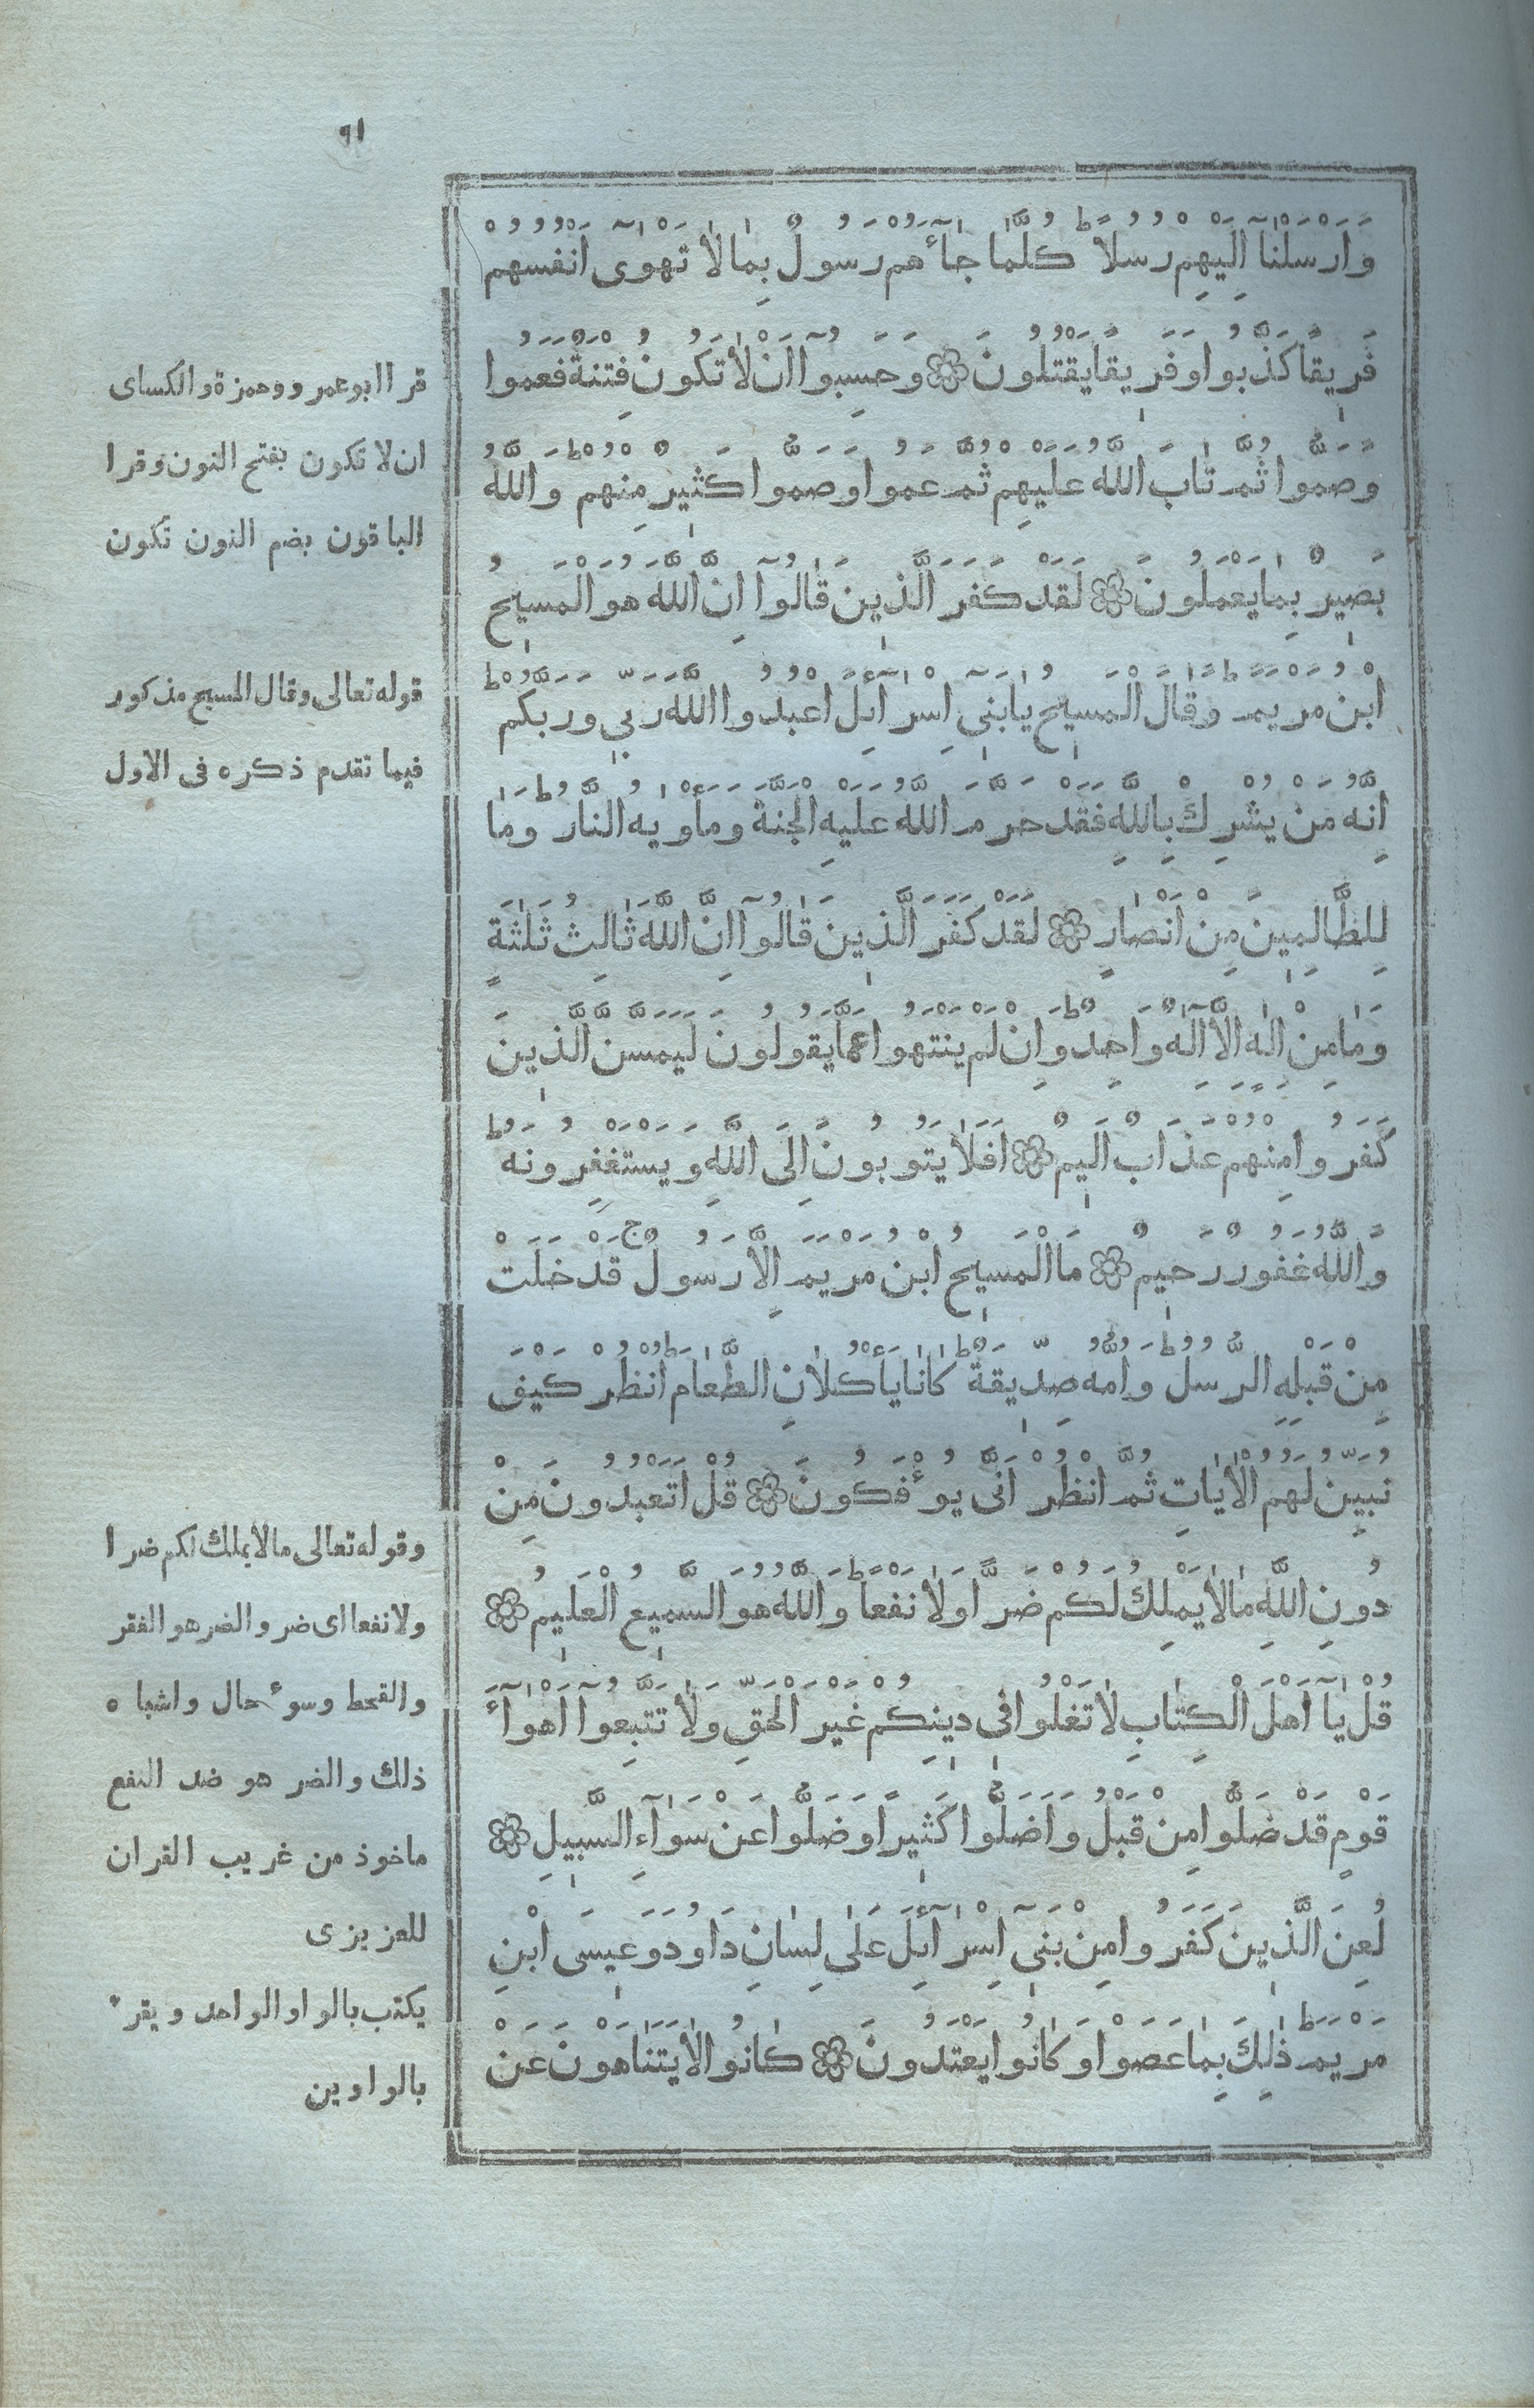 ٩١
وَاَرْسَلْنٰٓا اِلَيْهِمْ رُسُلًاط كُلَّمٰا جٰٓاءَهُمْ رَسُولٌ بِمٰا لٰا تَهْوٰٓى اَنْفُسُهُمْ
فَرِيقًا كَذَّبُوا وَفَرِيقًا يَقْتُلُونَ ۞ وَحَسِبُوٓا اَنْ لٰا تَكُونُ فِتْنَةٌ فَعَمُوا
وَصَمُّوا ثُمَّ تٰابَ اللَّهُ عَلَيْهِمْ ثُمَّ عَمُوا وَصَمُّوا كَثِيرٌ مِنْهُمْط وَاللَّهُ
بَصِيرٌ بِمٰا يَعْمَلُونَ ۞ لَقَدْ كَفَرَ الَّذِينَ قٰالُوٓا اِنَّ اللَّهَ هُوَ الْمَسِيحُ
ابْنُ مَرْيَمَط وَقٰالَ الْمَسِيحُ يٰا بَنِىٓ اِسْرٰٓاءِلَ اعْبُدُوا اللَّهَ رَبِّى وَرَبَّكُمْط
اِنَّهُ مَنْ يُشْرِكْ بِاللَّهِ فَقَدْ حَرَّمَ اللَّهُ عَلَيْهِ الْجَنَّةَ وَمَأْوٰيهُ النَّارُط وَمٰا
لِلظَّالِمِينَ مِنْ اَنْصٰارٍ ۞ لَقَدْ كَفَرَ الَّذِينَ قٰالُوٓا اِنَّ اللَّهَ ثٰالِثُ ثَلٰثَةٍ
وَمٰا مِنْ اِلٰهٍ اِلَّٓا اِلٰهٌ وَاحِدٌط وَاِنْ لَمْ يَنْتَهُوا عَمَّا يَقُولُونَ لَيَمَسَّنَّ الَّذِينَ
كَفَرُوا مِنْهُمْ عَذَابٌ اَلِيمٌ ۞ اَفَلٰا يَتُوبُونَ اِلَى اللَّهِ وَيَسْتَغْفِرُونَهُط
وَاللَّهُ غَفُورٌ رَحِيمٌ ۞ مَا الْمَسِيحُ ابْنُ مَرْيَمَ اِلَّا رَسُولٌج قَدْ خَلَتْ
مِنْ قَبْلِهِ الرُّسُلُ وَاُمُّهُ صِدِّيقَةٌط كٰانٰا يَأْكُلٰانِ الطَّعٰامَط اُنْظُرْ كَيْفَ
نُبَيِّنُ لَهُمُ الْاٰيٰاتِ ثُمَّ انْظُرْ اَنَّى يُوءْفَكُونَ ۞ قُلْ اَتَعْبُدُونَ مِنْ
دُونِ اللَّهِ مٰا لٰا يَمْلِكُ لَكُمْ ضَرًّا وَلٰا نَفْعًاط وَاللَّهُ هُوَ السَّمِيعُ الْعَلِيمُ ۞
قُلْ يٰٓا اَهْلَ الْكِتٰابِ لٰا تَغْلُوا فِى دِينِكُمْ غَيْرَ الْحَقِّ وَلٰا تَتَّبِعُوٓا اَهْوٰٓاءَ
قَوْمٍ قَدْ ضَلُّوا مِنْ قَبْلُ وَاَضَلُّوا كَثِيرًا وَضَلُّوا عَنْ سَوَآءِ السَّبِيلِ ۞
لُعِنَ الَّذِينَ كَفَرُوا مِنْ بَنِىٓ اِسْرٰٓاءِلَ عَلٰى لِسٰانِ دَاوُدَ وَعِيسَى ابْنِ
مَرْيَمَط ذٰلِكَ بِمٰا عَصَوْا وَكٰانُوا يَعْتَدُونَ ۞ كٰانُوا لٰا يَتَنٰاهَوْنَ عَنْ
قرا ابو عمرو وحمزة والكساى
ان لا تكون بفتح النون وقرا
الباقون بضم النون تكون
قوله تعالى وقال المسيح مذكور
فيما تقدم ذكره فى الاول
وقوله تعالى ما لا يملك لكم ضرا
ولا نفعا اى ضر والضر هو الفقر
والقحط وسوء حال واشباه
ذلك والضر هو ضد النفع
ماخوذ من غريب القران
للعزيزى
يكتب بالواو الواحد ويقرء
بالواوين